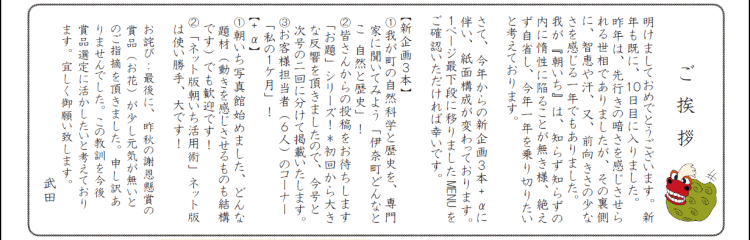 ご挨拶
明けましておめでとうございます。新
年も既に、10日目に入りました。
昨年は、先行きの暗さを感じさせら
れる世相でありましたが、その裏側
に、智恵や汗、又、前向きさの少な
さを感じる一年でもありました。
我が『朝いち』は、知らず知らずの
内に惰性に陥ることが無き様、絶え
ず自省し、今年一年を乗り切りたい
と考えております。
さて、今年からの新企画3本+αに
伴い、紙面構成が変わっております。
1ページ最下段に移りましたMENUを
ご確認いただければ幸いです。
【新企画3本】
①我が町の自然科学と歴史を、専門
家に聞いてみよう「伊奈町どんなと
こ 自然と歴史」!
②皆さんからの投稿をお待ちします
「お題」シリーズ!*初回から大き
な反響を頂きましたので、今号と
次号の二回に分けて掲載いたします。
③お客様担当者(6人)のコーナー
「私の1ケ月」!
【+α】
①朝いち写真館始めました、どんな
題材(動きを感じさせるものも結構
です)でも歓迎です!
②「ネット版朝いち活用術」ネット版
は使い勝手、大です!
お詫び:最後に、昨秋の謝恩懸賞の
賞品(お花)が少し元気が無いと
のご指摘を頂きました。申し訳あ
りませんでした。この教訓を今後
賞品選定に活かしたいと考えており
ます。宜しく御願い致します。
武田